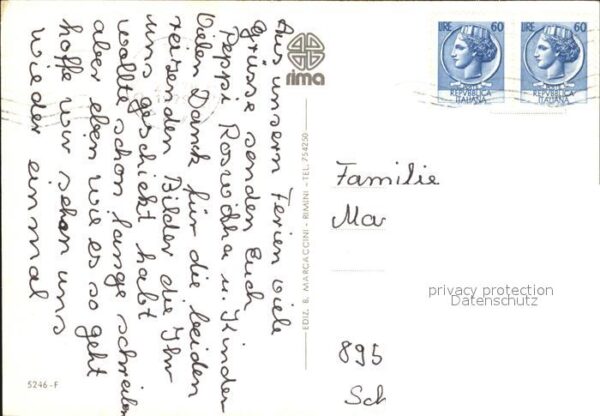 Aus unsern Ferien viele
Grüsse senden Euch
Peppi Roswitha u. Kinder
Vielen Dank für die beiden
reisenden Bilder die Ihr
uns geschickt habt
wollte schon lange schreiben
aber eben wie es so geht
hoffe wir sehen uns
wieder einmal
rima
EDIZ. B. MARGACCINI - RIMINI - TEL. 754250
5246-F
LIRE 60
POSTE
REPVBBLICA
ITALIANA
LIRE 60
POSTE
REPVBBLICA
ITALIANA
Familie
Mar
privacy protection
Datenschutz
895
Sch